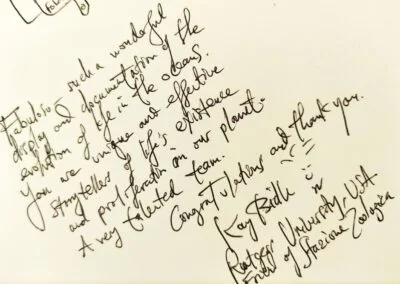 Fabuloso! such a wonderful
display and documentation of the
evolution of life in the oceans.
You are unique and effective
storytellers of life's existence
and proliferation on our planet.
A very talented team.
Congratulations and thank you.
Kay
Rutgers University, USA
of Stazione Zoologica